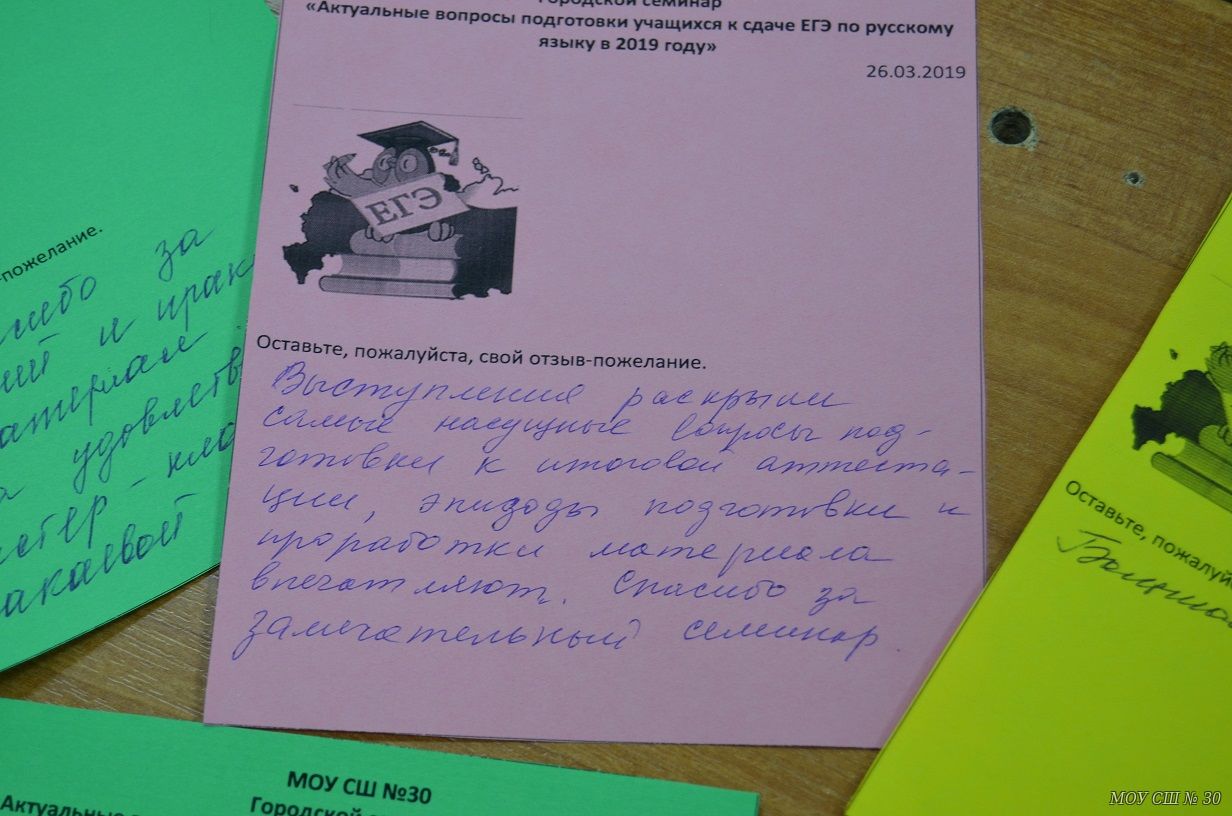 Городской семинар
«Актуальные вопросы подготовки учащихся к сдаче ЕГЭ по русскому
языку в 2019 году»
26.03.2019
ЕГЭ
Оставьте, пожалуйста, свой отзыв-пожелание.
Выступления раскрыли
самые насущные вопросы под-
готовки к итоговой аттеста-
ции, эпизоды подготовки и
проработки материала
впечатляют. Спасибо за
замечательный семинар.
-пожелание.
сибо за
ий и прак
атериал
удовлетв
стер-кла
акаевой
Оставьте, пожалуй
МОУ СШ №30
Городской с
Актуальные в
МОУ СШ № 30